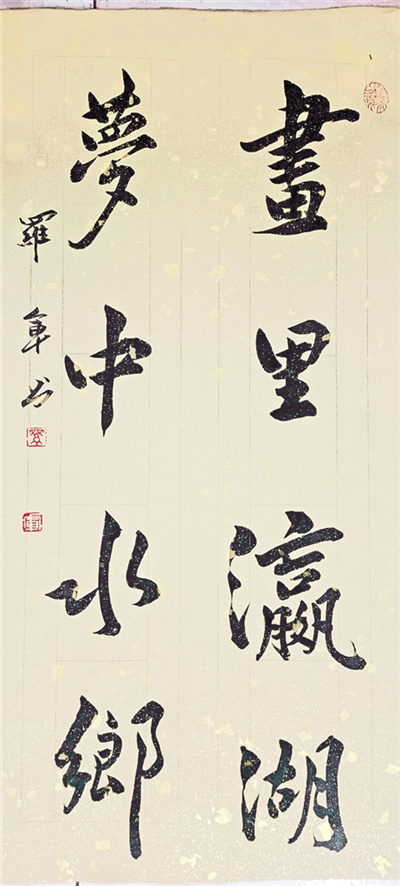 畫里瀛湖
夢中水鄉
羅軍书